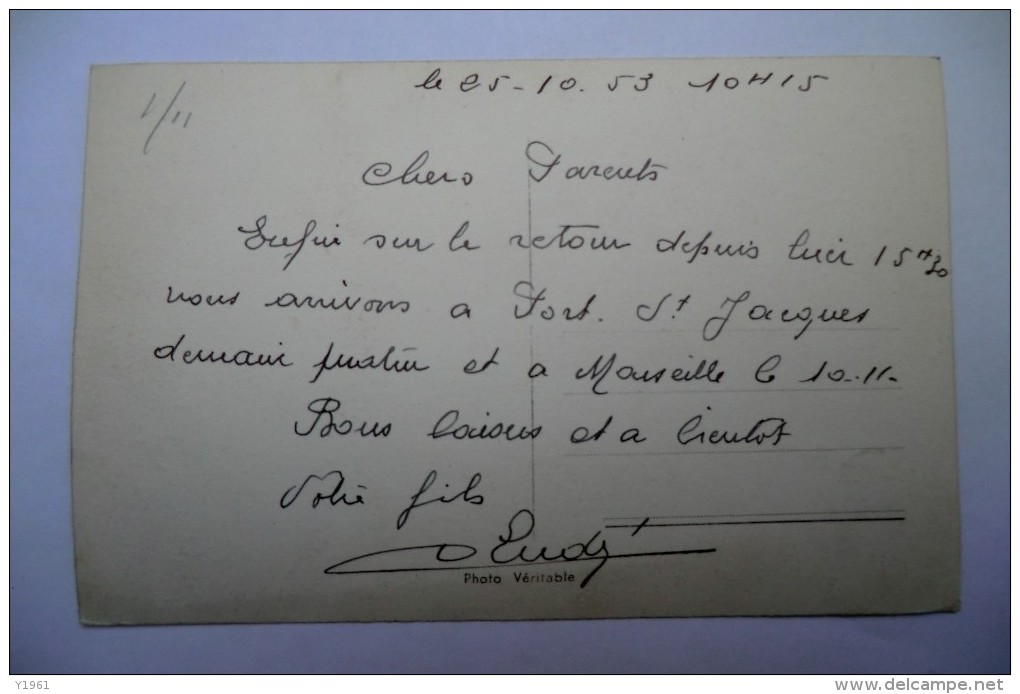 le 25-10.53 10H15
1/11
Chers Parents
Enfin sur le retour depuis hier 15H30
nous arrivons a Port. St Jacques
demain matin et a Marseille le 10-11-
Bons baisers et a bientot
Votre fils
Photo Véritable
Y1961
delcampe.net